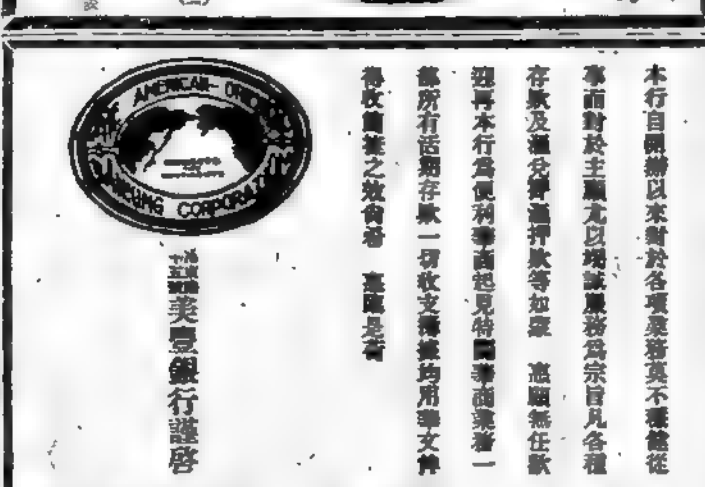 本行自開辦以來對於各項業務莫不積極從
事而對於主顧尤以竭誠服務爲宗旨凡各種
存款及滙兌押滙押款等如蒙 惠顧無任歡
迎再本行爲便利華商起見特闢華商業務一
部所有活期存款一切收支簿據均用華文俾
得收簡捷之效尙希 惠臨是荷
AMERICAN-ORIENTAL
BANKING CORPORATION
美豐銀行謹啓